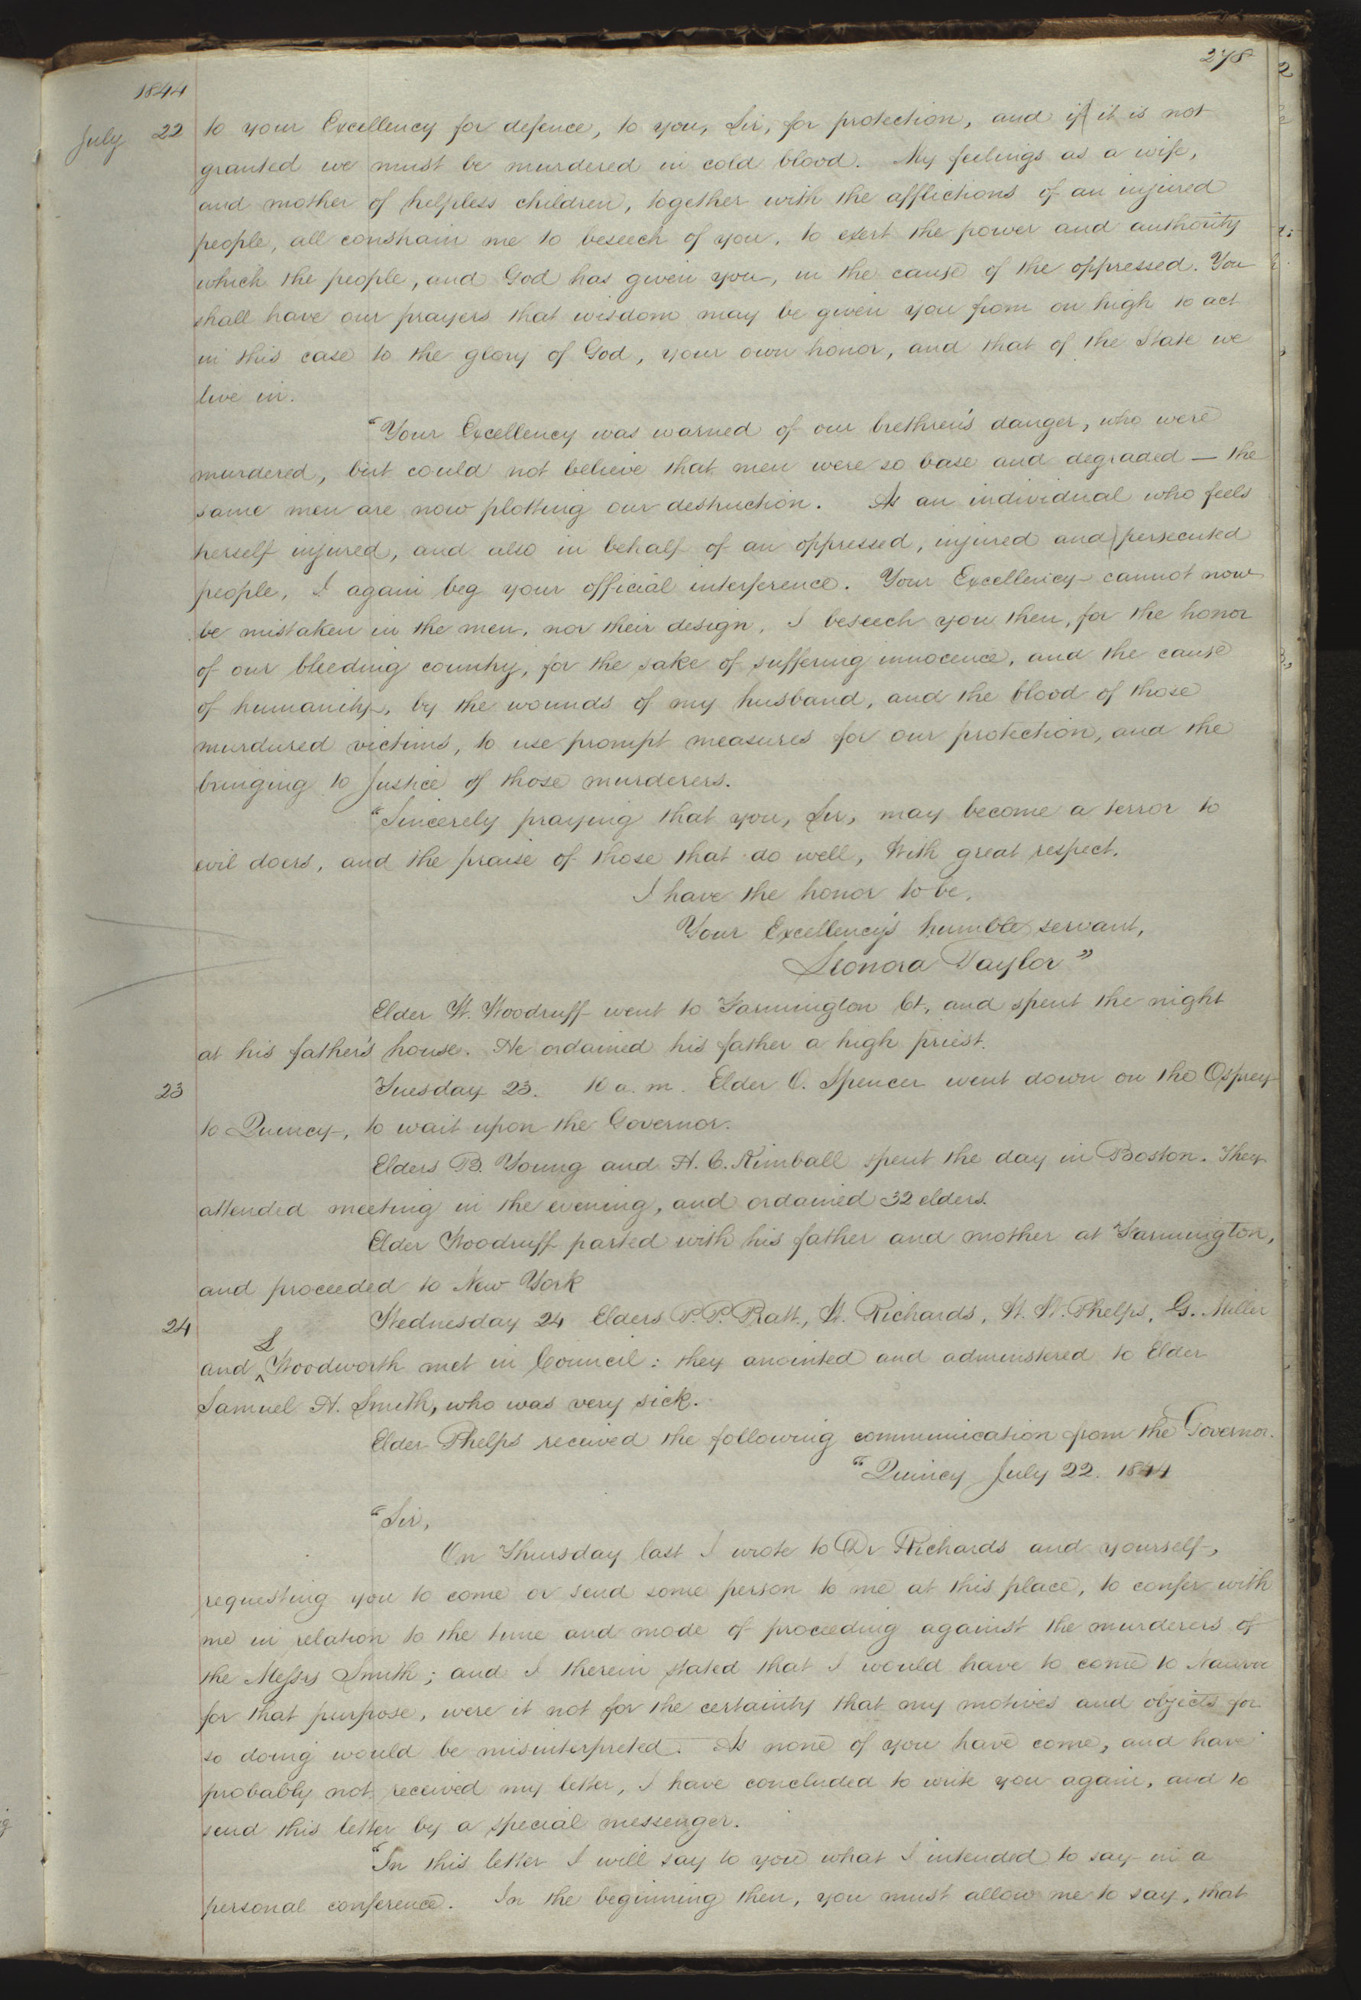 278
1844
July 22 to your Excellency for defence, to you, Sir, for protection, and if it is not
granted we must be murdered in cold blood. My feelings as a wife,
and mother of helpless children, together with the afflictions of an injured
people, all constrain me to beseech of you, to exert the power and authority
which the people, and God has given you, in the cause of the oppressed. You
shall have our prayers that wisdom may be given you from on high to act
in this case to the glory of God, your own honor, and that of the State we
live in.
"Your Excellency was warned of our brethren's danger, who were
murdered, but could not believe that men were so base and degraded — the
same men are now plotting our destruction. As an individual who feels
herself injured, and also in behalf of an oppressed, injured and persecuted
people, I again beg your official interference. Your Excellency cannot now
be mistaken in the men, nor their design. I beseech you then, for the honor
of our bleeding country, for the sake of suffering innocence, and the cause
of humanity, by the wounds of my husband, and the blood of those
murdured victims, to use prompt measures for our protection, and the
bringing to Justice of those murderers.
"Sincerely praying that you, Sir, may become a terror to
evil doers, and the praise of those that do well, With great respect.
I have the honor to be,
Your Excellency's humble servant,
Leonora Taylor"
Elder W. Woodruff went to Farmington Ct, and spent the night
at his father's house. He ordained his father a high priest.
23 Tuesday 23. 10 a.m. Elder O. Spencer went down on the Osprey
to Quincy, to wait upon the Governor.
Elders B. Young and H. C. Kimball spent the day in Boston. They
attended meeting in the evening, and ordained 32 elders.
Elder Woodruff parted with his father and mother at Farmington,
and proceeded to New York
24 Wednesday 24 Elders P. P. Pratt, W. Richards, W. W. Phelps, G. Miller
and ^L Woodworth met in Council: they anointed and adminstered to Elder
Samuel H. Smith, who was very sick.
Elder Phelps received the following communication from the Governor.
"Quincy July 22. 1844
"Sir,
On Thursday last I wrote to Dr Richards and yourself,
requesting you to come or send some person to me at this place, to confer with
me in relation to the time and mode of proceeding against the murderers of
the Messrs Smith; and I therein stated that I would have to come to Nauvoo
for that purpose, were it not for the certainty that my motives and objects for
so doing would be misinterpreted. As none of you have come, and have
probably not received my letter, I have concluded to write you again, and to
send this letter by a special messenger.
"In this letter I will say to you what I intended to say in a
personal conference. In the beginning then, you must allow me to say, that